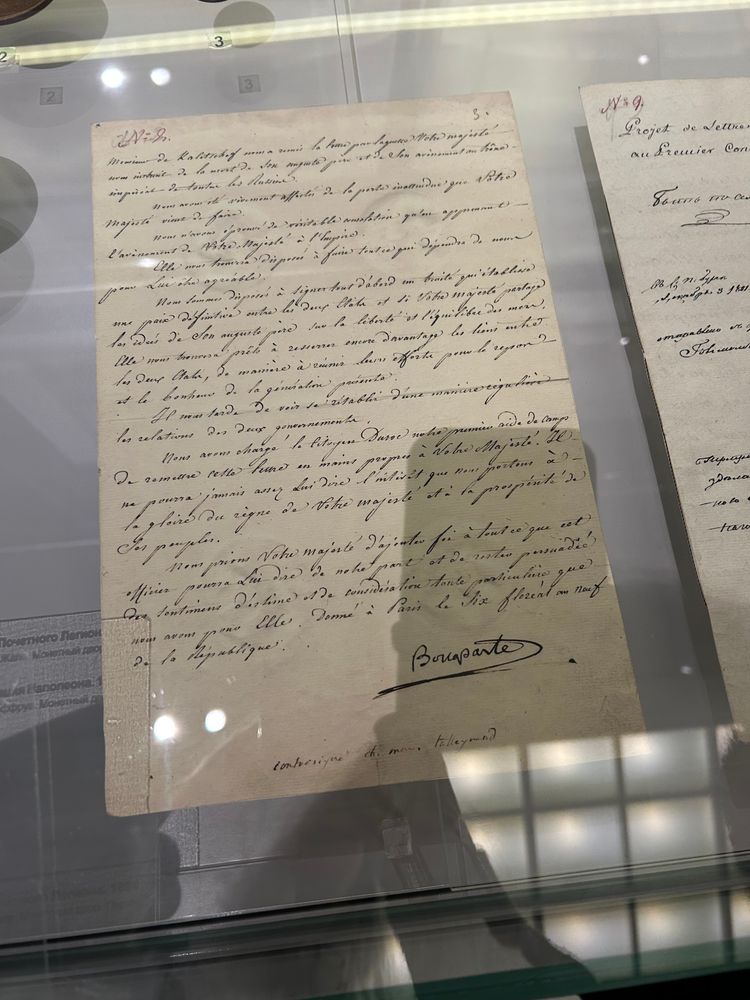 2
3
2
3
N: 2.
3.
Monsieur de Kalitscheff nous a remis la lettre par laquelle Votre majesté
nous instruit de la mort de Son auguste père et de Son avènement au trône
impérial de toutes les Russies.
Nous avons été vivement affectés de la perte inattendue que Votre
Majesté vient de faire.
Nous n'avons éprouvé de véritable consolation qu'en apprenant
l'avènement de Votre Majesté à l'Empire.
Elle nous trouvera disposé à faire tout ce qui dépendra de nous
pour Lui être agréable.
Nous sommes disposé à signer tout d'abord un traité qui établisse
une paix définitive entre les deux Etats et si Votre majesté partage
les idées de Son auguste père sur la liberté et l'équilibre des mers,
Elle nous trouvera prêts à resserrer encore davantage les liens entre
les deux Etats, de manière à réunir leurs efforts pour le repos
et le bonheur de la génération présente.
Il nous tarde de voir se rétablir d'une manière régulière
les relations des deux gouvernements.
Nous avons chargé le Citoyen Duroc notre premier aide de camp
de remettre cette lettre en mains propres à Votre Majesté. Il
ne pourra jamais assez Lui dire l'intérêt que nous portons à
la gloire du règne de Votre majesté et à la prospérité de
Ses peuples.
Nous prions Votre majesté d'ajouter foi à tout ce que cet
officier pourra Lui dire de notre part et de rester persuadée
des sentimens d'estime et de considération toute particulière que
nous avons pour Elle. Donné à Paris le Six floréal an neuf
de la République.
Bonaparte
contresigné ch. mau. talleyrand
N: 9.
Projet de Lettre
au Premier Con
Быть по се
Почетного Легион
Монетный дво
Наполеона. 1
Монетный д